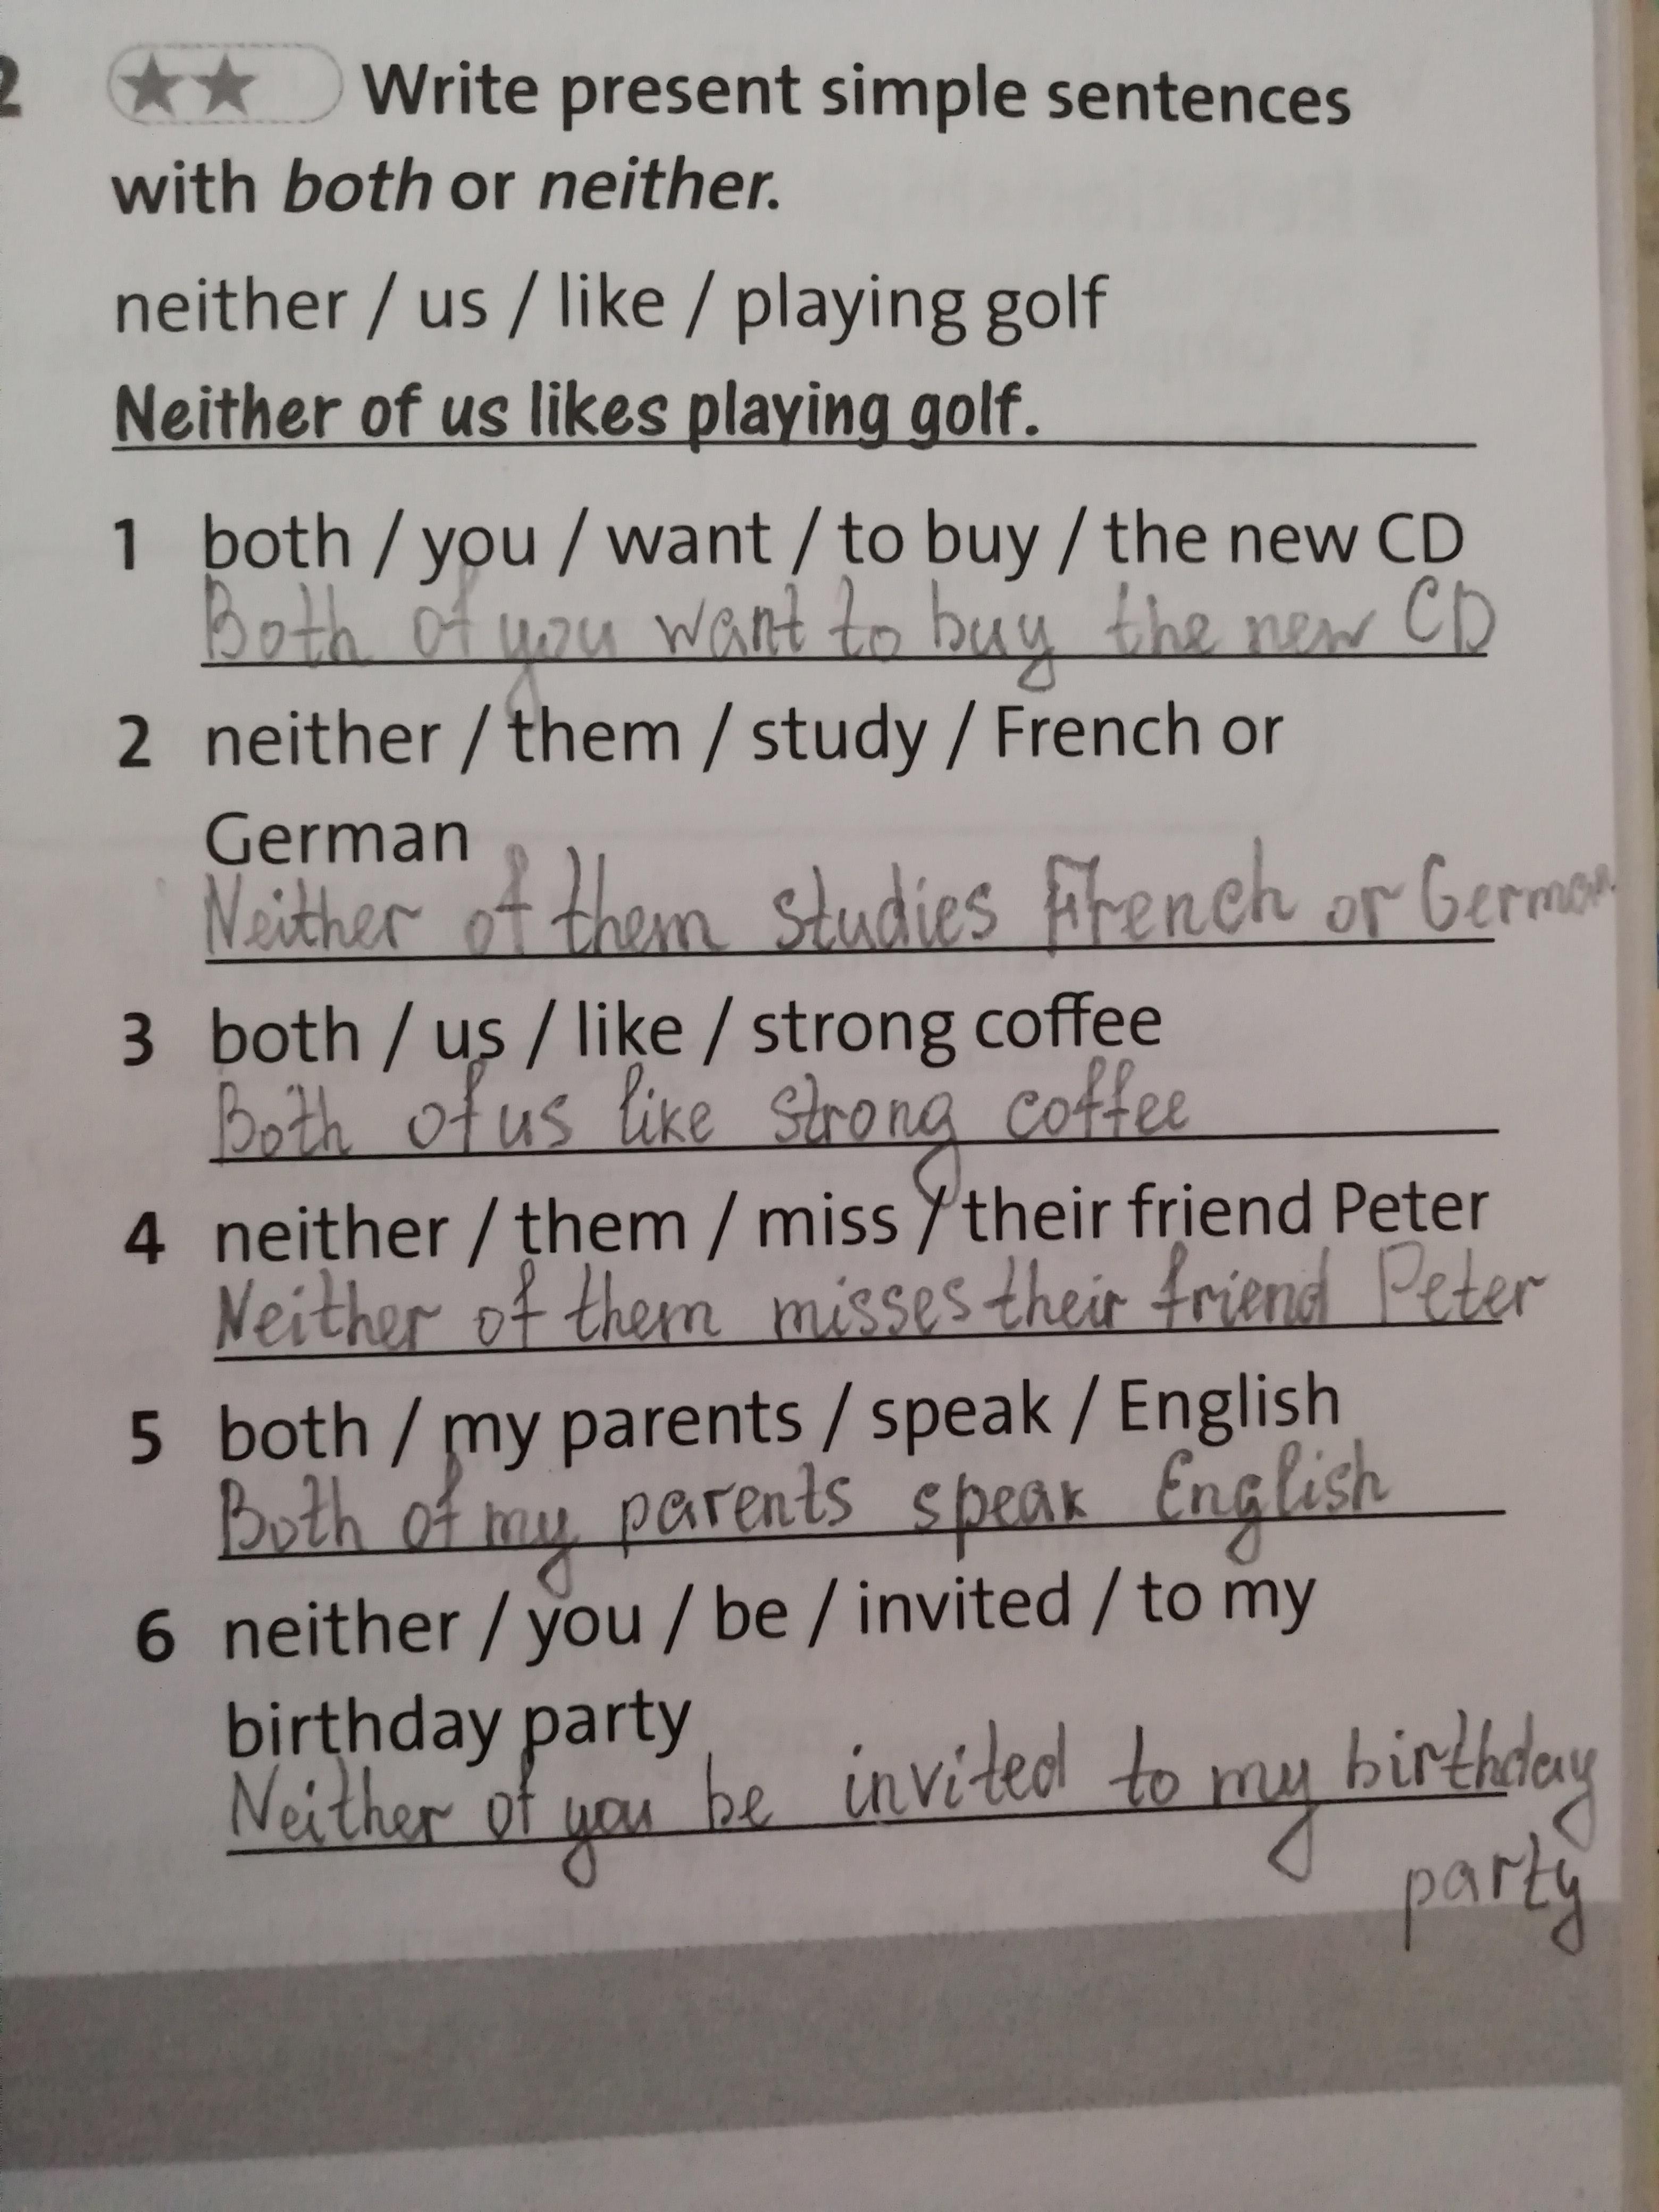 2 ★★ Write present simple sentences
with both or neither.
neither / us / like / playing golf
Neither of us likes playing golf.
1 both / you / want / to buy / the new CD
Both of you want to buy the new CD
2 neither / them / study / French or
German
Neither of them studies French or German
3 both / us / like / strong coffee
Both of us like strong coffee
4 neither / them / miss / their friend Peter
Neither of them misses their friend Peter
5 both / my parents / speak / English
Both of my parents speak English
6 neither / you / be / invited / to my
birthday party
Neither of you be invited to my birthday
party